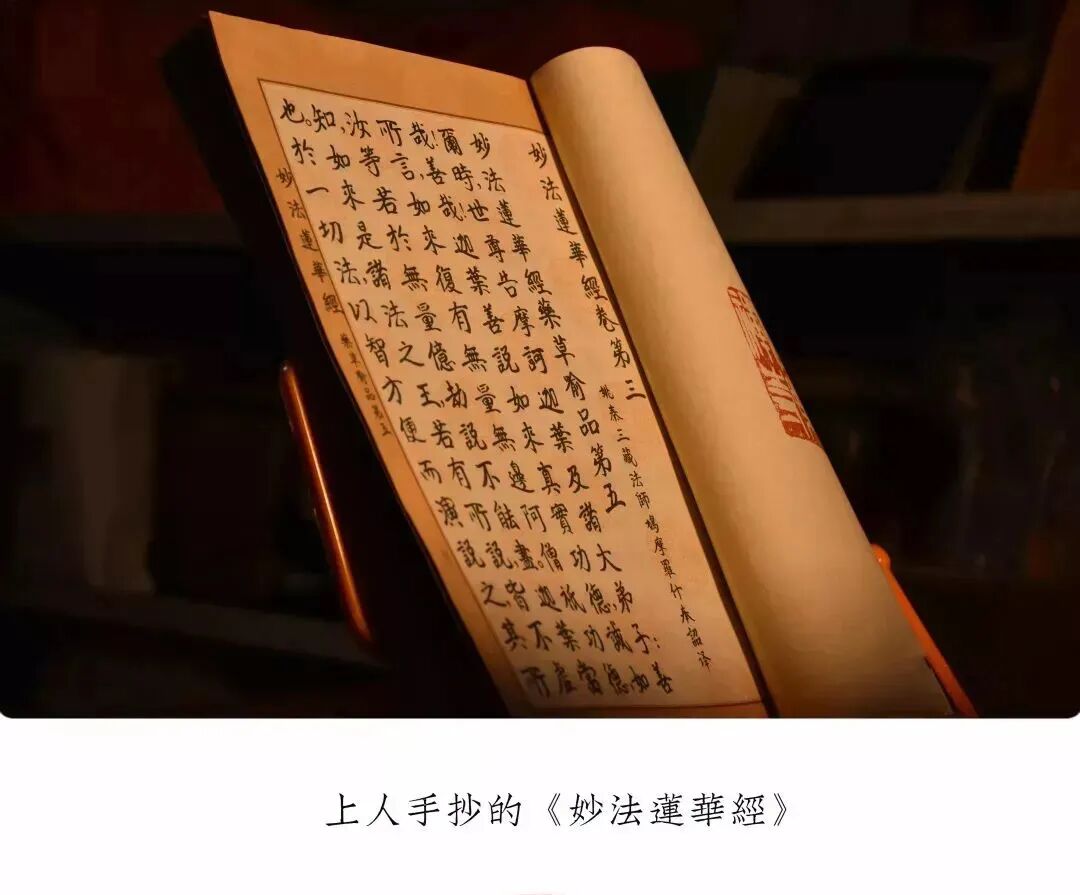 妙法蓮華經卷第三
姚秦三藏法師鳩摩羅什奉詔译
妙法蓮華經藥草喻品第五
爾時,世尊告摩訶迦葉及諸大弟子:善
哉!善哉!迦葉善說如來真實功德,誠如
所言,如來復有無量無邊阿僧祇功德,
汝等若於無量億劫說不能盡。迦葉當
知,如來是諸法之王,若有所說,皆不虛
也。於一切法,以智方便而演說之,其所
妙法蓮華經 藥草喻品第五
上人手抄的《妙法蓮華經》